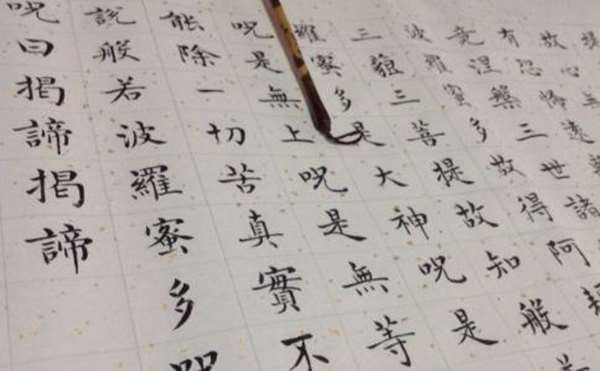 提
故心無
有恐怖遠
竟涅槃三世諸
波羅蜜多故得阿
三藐三菩提故知般
羅蜜多是大神呪是
呪是無上呪是無等
能除一切苦真實不
說般若波羅蜜多呪
呪曰揭諦揭諦